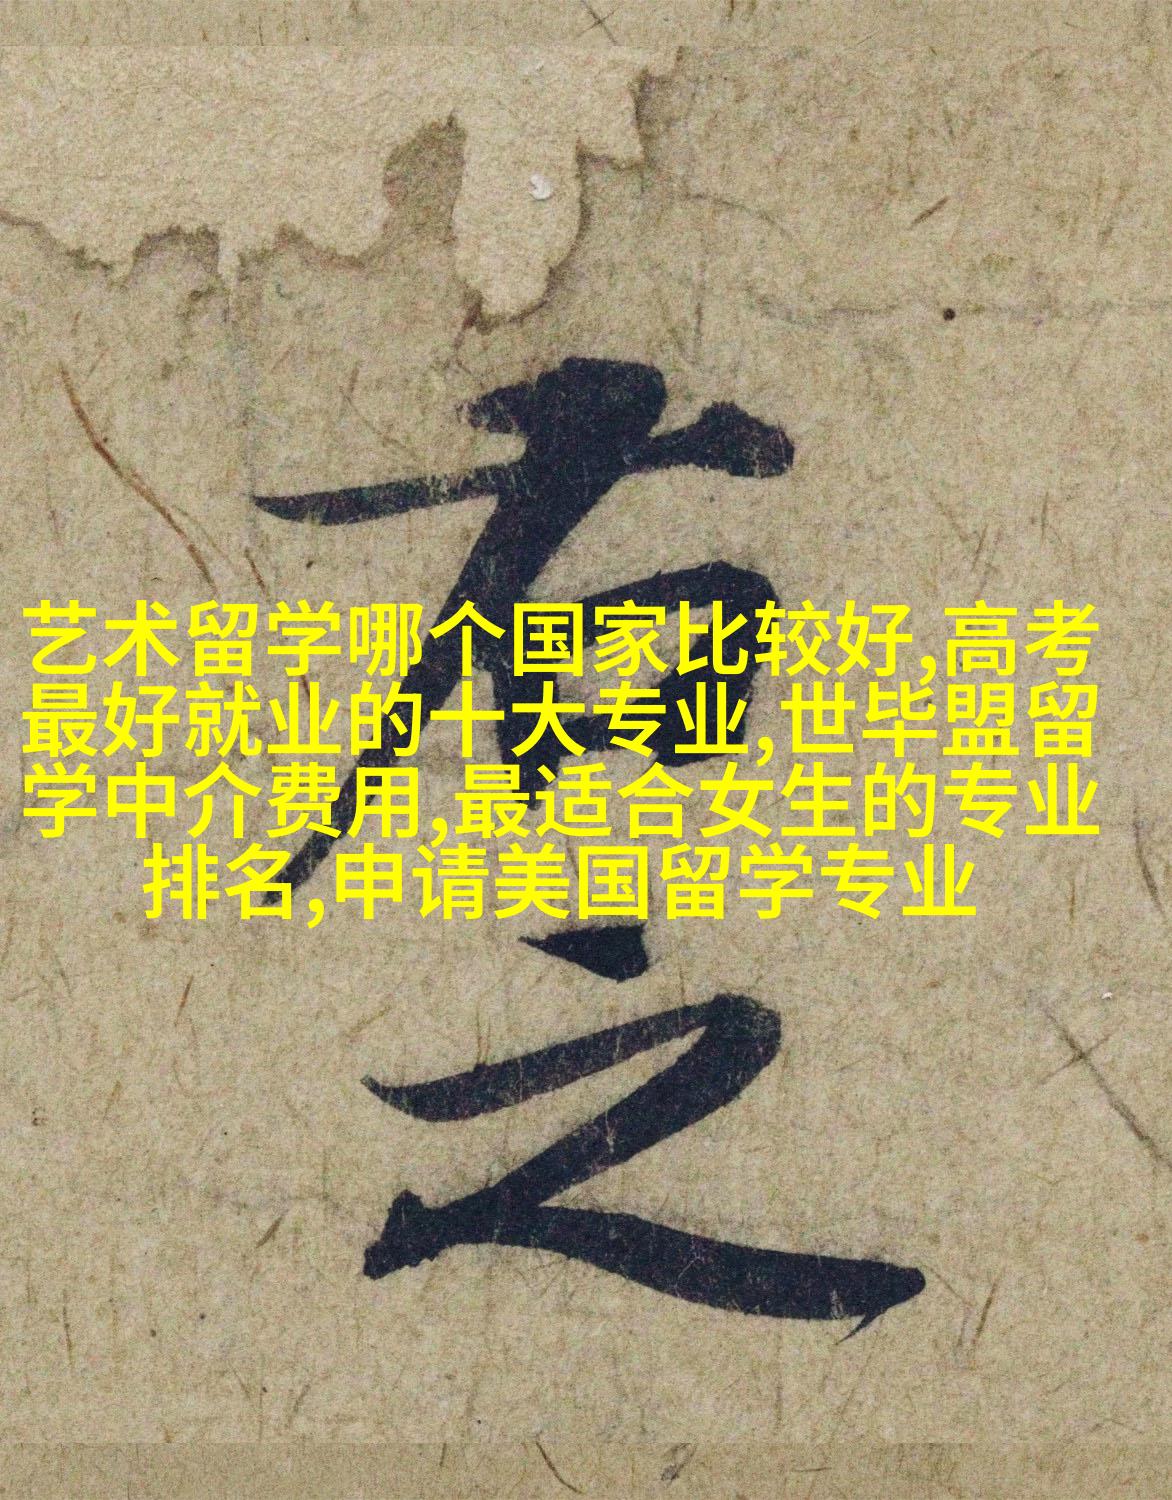 右
之
艺术留学哪个国家比较好,高考
最好就业的十大专业,世毕盟留
学中介费用,最适合女生的专业
排名,申请美国留学专业